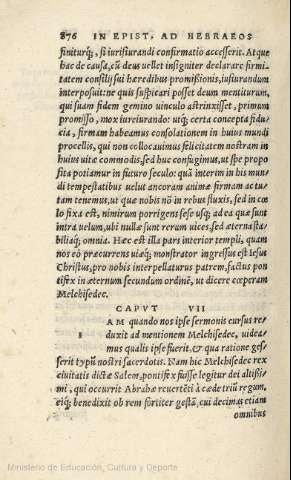 876 IN EPIST. AD HEBRAEOS
finiturq;, si iurisiurandi confirmatio accesserit. Atque
hac de causa, cũ deus uellet insigniter declarare firmi-
tatem consilij sui hæredibus promissionis, iusiurandum
interposuit: ne quis suspicari posset deum mentiturum,
qui suam fidem gemino uinculo astrinxisset, primum
promisso, mox iureiurando: utq; certa concepta fidu-
cia, firmam habeamus consolationem in huius mundi
procellis, qui non collocauimus felicitatem nostram in
huius uitæ commodis, sed huc confugimus, ut spe propo
sita potiamur in futuro seculo: quã interim in his mun-
di tempestatibus uelut ancoram animæ firmam ac tu-
tam tenemus, ut quæ nobis nõ in rebus fluxis, sed in cœ
lo fixa est, nimirum porrigens sese usq; ad ea quæ sunt
intra uelum, ubi nulla sunt rerum uices, sed æterna sta-
biliaq; omnia. Hæc est illa pars interior templi, quam
nos eò præcurrens uiæq; monstrator ingressus est Iesus
Christus, pro nobis interpellaturus patrem, factus pon
tifex in æternum secundum ordinẽ, ut dicere cœperam
Melchisedec.
CAPVT VII
IAM quando nos ipse sermonis cursus re-
duxit ad mentionem Melchisedec, uidea-
mus qualis ipse fuerit, & qua ratione ges-
serit typũ nostri sacerdotis. Nam hic Melchisedec rex
ciuitatis dictæ Salem, pontifex fuisse legitur dei altissi-
mi, qui occurrit Abrahæ reuertẽti à cæde triũ regum,
eiq; benedixit ob rem fortiter gestã, cui decimas etiam
omnibus
Ministerio de Educación, Cultura y Deporte